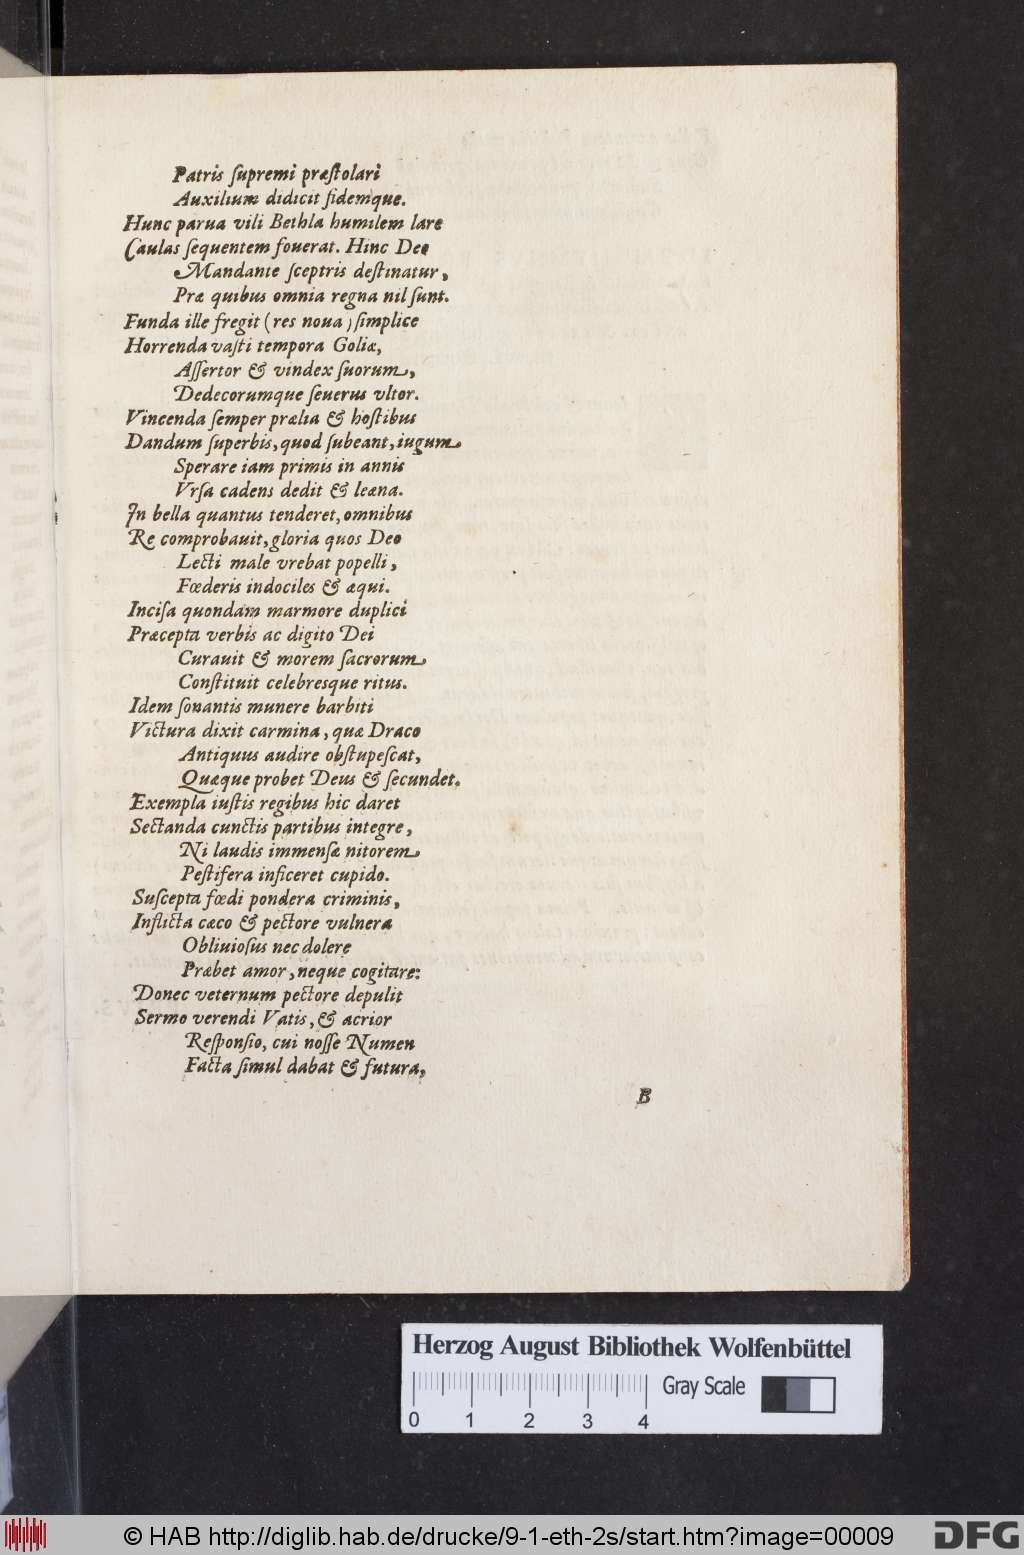 Patris ſupremi præſtolari
Auxilium didicit fidemque.
Hunc parua vili Bethla humilem lare
Caulas ſequentem fouerat. Hinc Deo
Mandante ſceptris deſtinatur,
Præ quibus omnia regna nil ſunt.
Funda ille fregit (res noua) ſimplice
Horrenda vaſti tempora Goliæ,
Aſſertor & vindex ſuorum,
Dedecorumque ſeuerus vltor.
Vincenda ſemper prælia & hoſtibus
Dandum ſuperbis, quod ſubeant, iugum
Sperare iam primis in annis
Vrſa cadens dedit & leæna.
In bella quantus tenderet, omnibus
Re comprobauit, gloria quos Deo
Lecti male vrebat popelli,
Fœderis indociles & æqui.
Inciſa quondam marmore duplici
Præcepta verbis ac digito Dei
Curauit & morem ſacrorum
Conſtituit celebresque ritus.
Idem ſonantis munere barbiti
Victura dixit carmina, quæ Draco
Antiquus audire obſtupeſcat,
Quæque probet Deus & ſecundet.
Exempla iuſtis regibus hic daret
Sectanda cunctis partibus integre,
Ni laudis immenſæ nitorem
Peſtifera inficeret cupido.
Suſcepta fœdi pondera criminis,
Inflicta cæco & pectore vulnera
Obliuioſus nec dolere
Præbet amor, neque cogitare:
Donec veternum pectore depulit
Sermo verendi Vatis, & acrior
Reſponſio, cui noſſe Numen
Facta ſimul dabat & futura,
B
Herzog August Bibliothek Wolfenbüttel
Gray Scale
0 1 2 3 4
© HAB http://diglib.hab.de/drucke/9-1-eth-2s/start.htm?image=00009
DFG